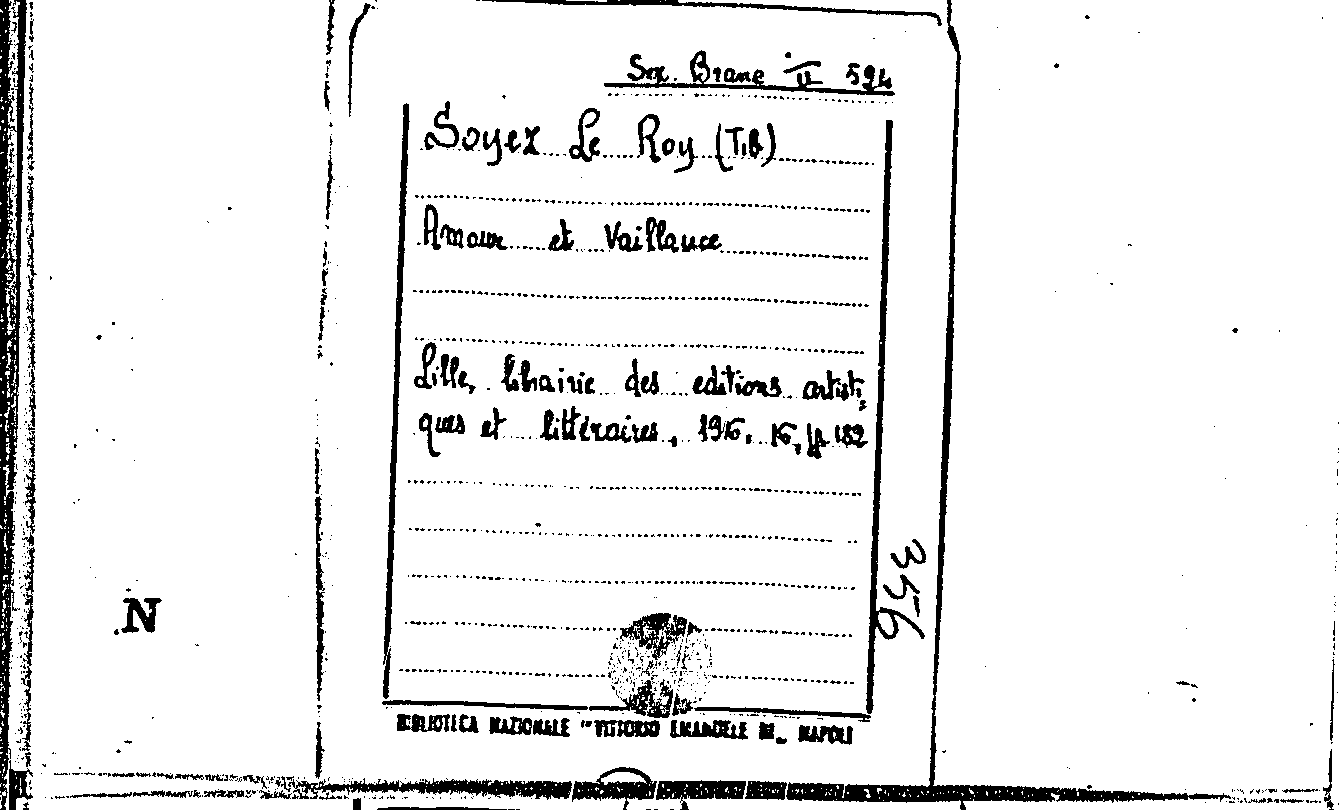 Sez. Branc II 594
Soyez Le Roy (T.B)
Amour et Vaillance
Lille, librairie des editions artisti,
ques et littéraires, 1916, 16, pp 182
356
N
BIBLIOTECA NAZIONALE "VITTORIO EMANUELE III„ NAPOLI